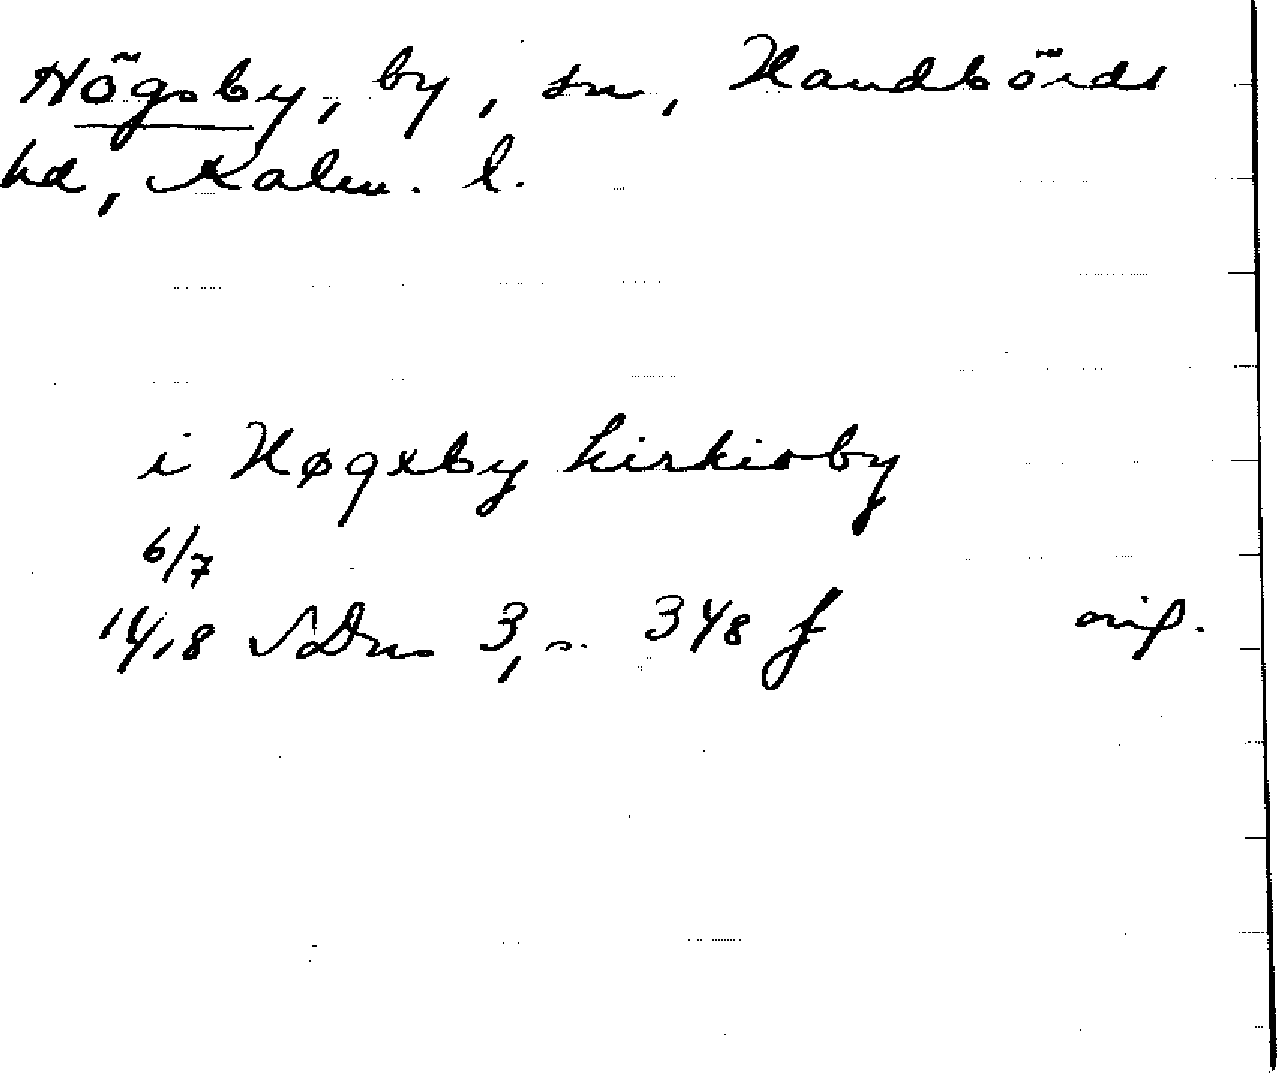 Högsby, by, sn, Handbörds
hd, Kalm. l.
i Høgxby kirkioby
6/7
1418 SDns 3, s. 348 f orig.